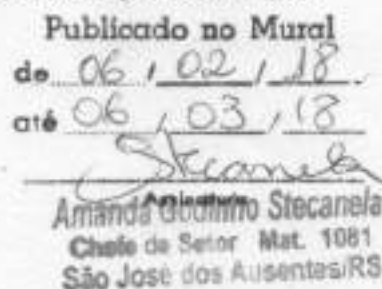 Publicado no Mural
de 06 / 02 / 18
até 06 / 03 / 18
Stecanela
Assinatura
Amanda Godinho Stecanela
Chefe de Setor Mat. 1081
São José dos Ausentes/RS